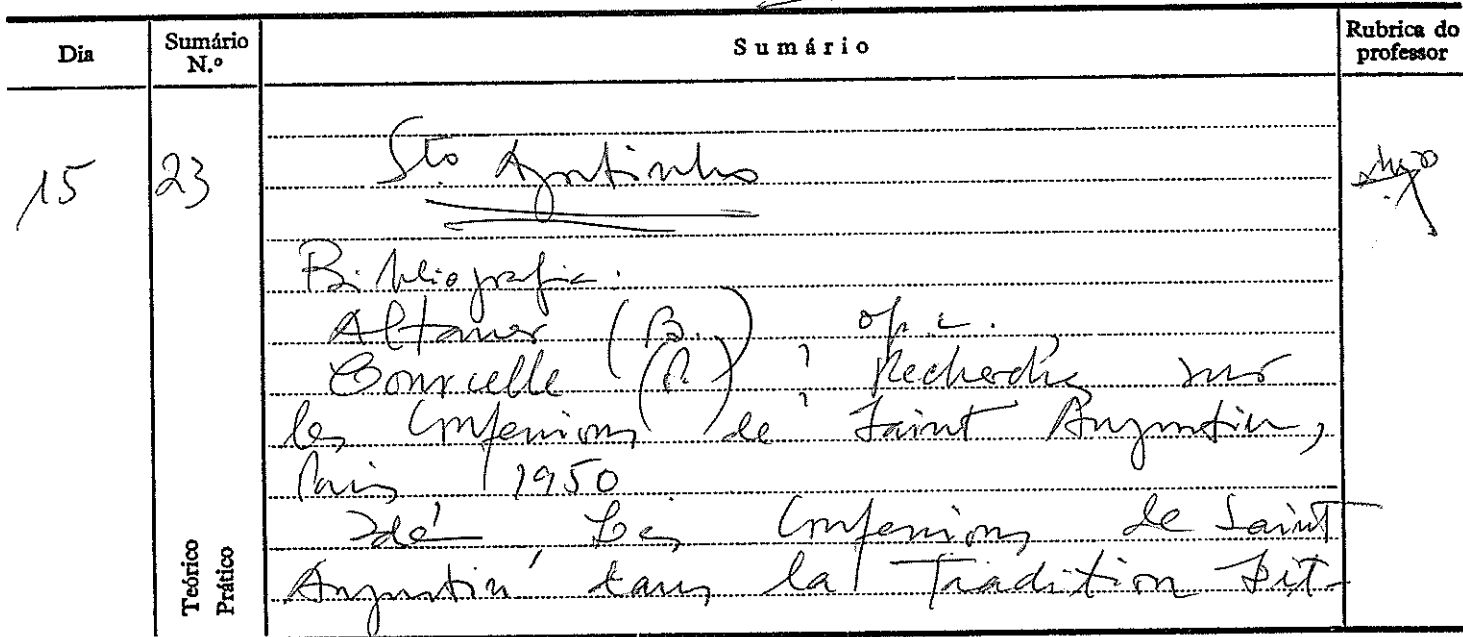 Dia
Sumário N.º
Sumário
Rubrica do professor
15
23
Sto Agostinho
Bibliografia:
Altaner (B.), op. c.
Courcelle (P.), Recherches sur
les Confessions de Saint Augustin,
Paris 1950
Idé, Les Confessions de Saint
Augustin dans la Tradition Lit-
Teórico
Prático